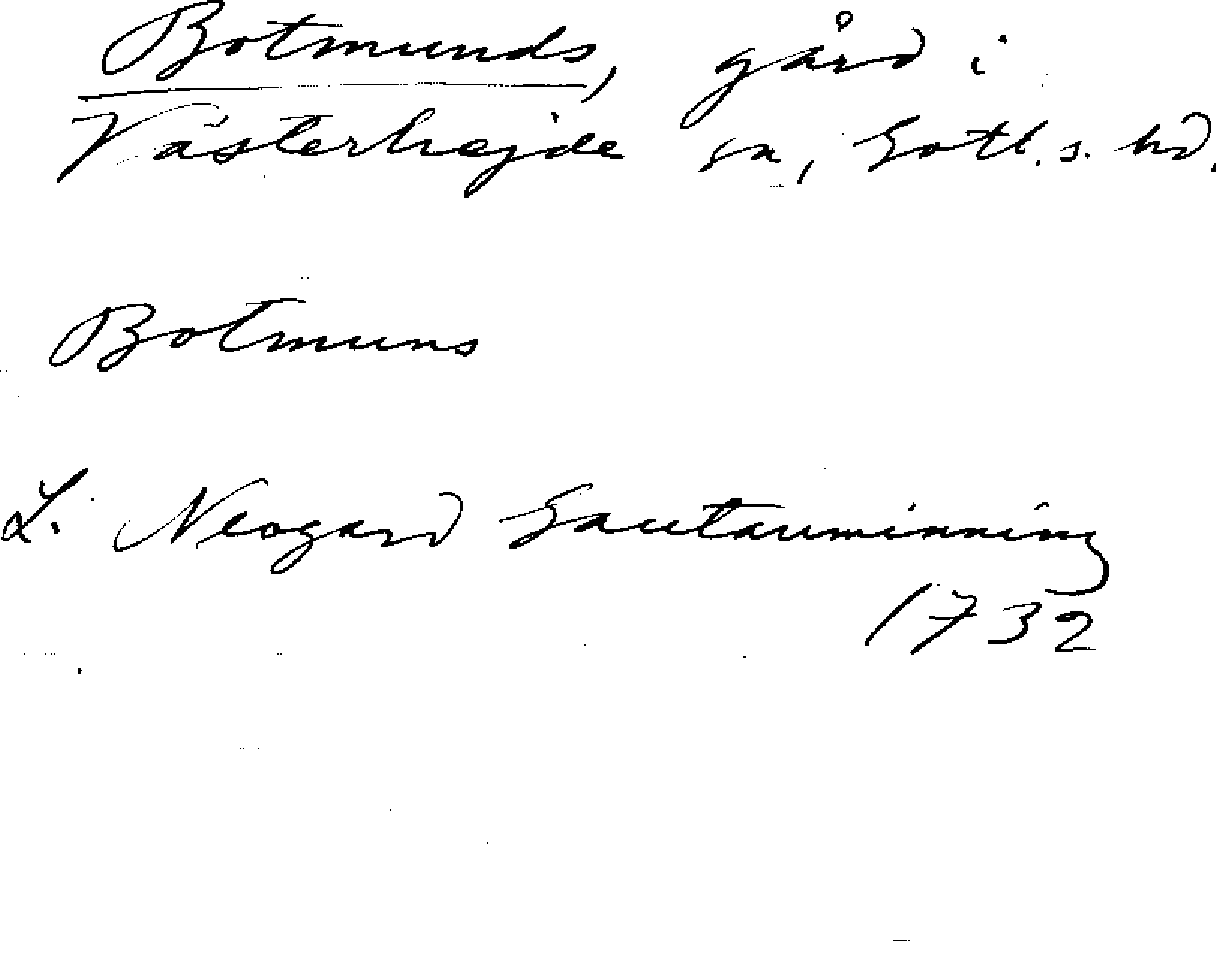 Botmunds, gård i
Västerhejde sn, Gotl. s. hd.
Botmuns
L. Neogard Gautauminning
1732